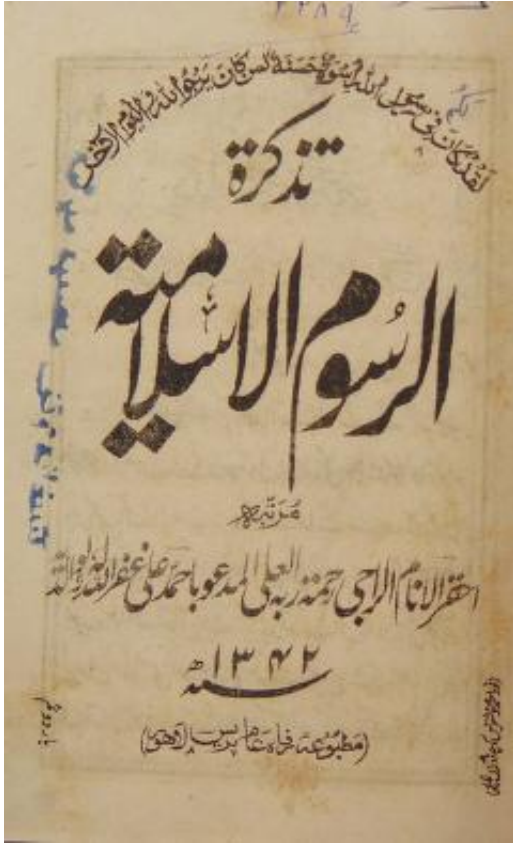 ٢٢٨٩
لقد كان لكم في رسول الله أسوة حسنة لمن كان يرجو الله واليوم الآخر
تذكرة
الرسوم الاسلامية
مرتبہ
احقر الانام الراجی رحمة ربه العلی المدعو باحمد علی غفر الله له ولوالديه
سنہ ١٣٤٢ھ
(مطبوعہ رفاہ عام پریس لاہور)
بار دوم